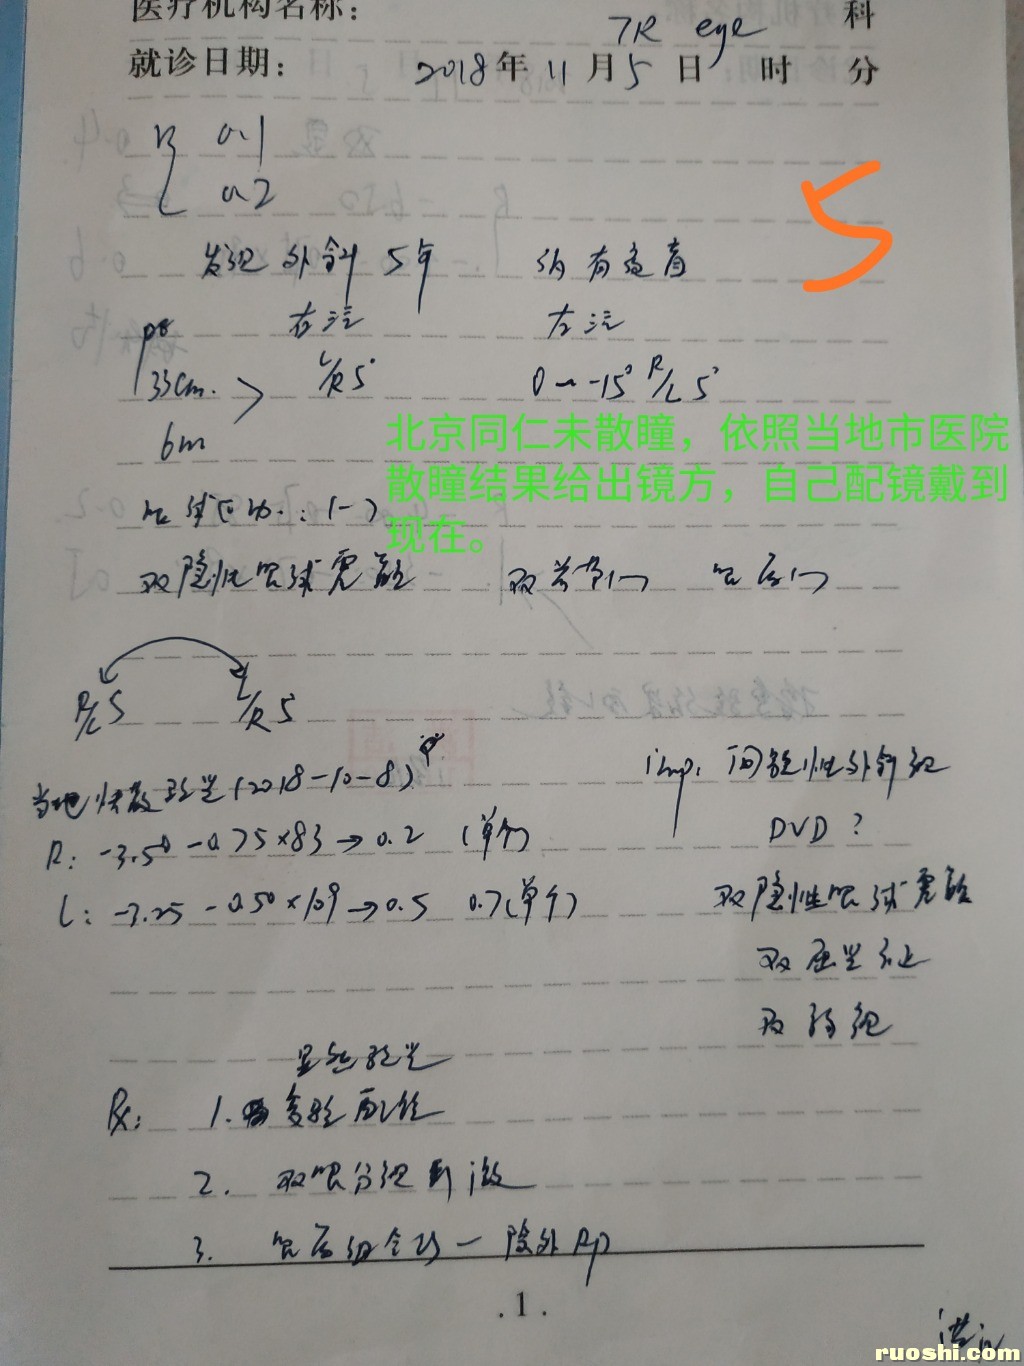 医疗机构名称： TR eye 科
就诊日期： 2018年 11月 5日 时 分
R 0.1
L 0.2
5
发现外斜5年
右注 左注
33cm. L/R 5° 0~-15° R/L 5°
6m
北京同仁未散瞳，依照当地市医院
散瞳结果给出镜方，自己配镜戴到
现在。
眼球运动：(-)
双隐性眼球震颤 双 (-) 眼底(-)
R/L 5 L/R 5
当地快散验光(2018-10-8)
imp. 间歇性外斜视
R: -3.50 -0.75×83→0.2 (单个)
DVD ?
L: -3.25 -0.50×109→0.5 0.7(单个)
双隐性眼球震颤
双屈光不正
双弱视
显然验光
Rx: 1. 复验配镜
2. 双眼分视刺激
3. 眼底 除外RP
.1.
ruoshi.com